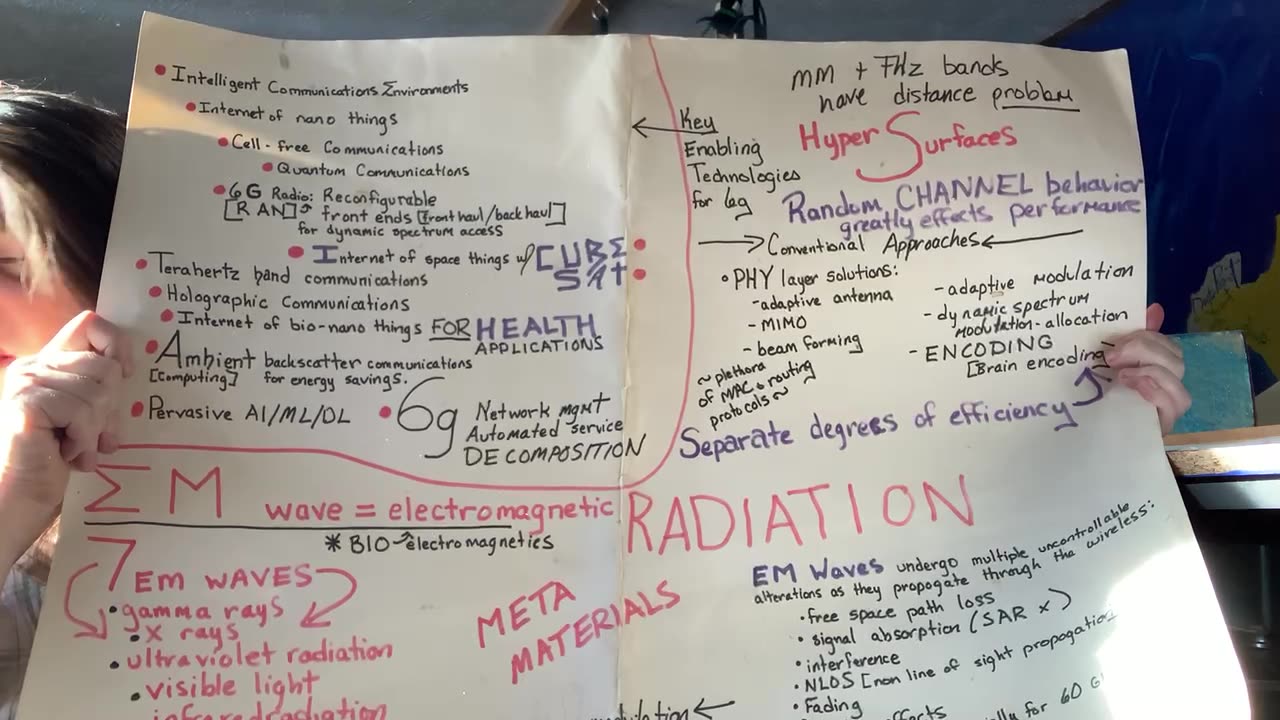 • Intelligent Communications Environments
• Internet of nano things
• Cell-free Communications
• Quantum Communications
• 6G Radio: Reconfigurable
[RAN] front ends [front haul/backhaul]
for dynamic spectrum access
• Internet of space things w/ [CUBE
SAt
• Terahertz band communications
• Holographic Communications
• Internet of bio-nano things FOR HEALTH
APPLICATIONS
• Ambient backscatter communications
[Computing] for energy savings.
• Pervasive AI/ML/DL
• 6g Network mgmt
Automated service
DECOMPOSITION
Key
Enabling
Technologies
for 6g
mm + THz bands
have distance problem
Hyper Surfaces
Random CHANNEL behavior
greatly effects performance
Conventional Approaches
• PHY layer solutions:
- adaptive antenna
- MIMO
- beam forming
~ plethora
of MAC & routing
protocols ~
- adaptive modulation
- dynamic spectrum
modulation-allocation
- ENCODING
[Brain encoding]
Separate degrees of efficiency
ΣM wave = electromagnetic RADIATION
* BIO electromagnetics
7 EM WAVES
• gamma rays
• X rays
• ultraviolet radiation
• visible light
infrared radiation
META
MATERIALS
EM Waves undergo multiple uncontrollable
alterations as they propagate through the wireless:
• free space path loss
• signal absorption (SAR x)
• interference
• NLOS [non line of sight propagation
• Fading
effects
for 60 G